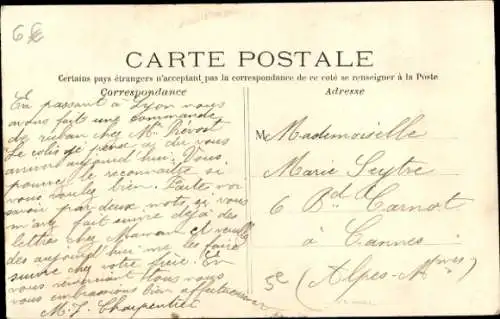 6€
CARTE POSTALE
Certains pays étrangers n'acceptant pas la correspondance de ce coté se renseigner à la Poste
Correspondance
Adresse
En passant à Lyon nous
avons fait une commande
de ruban chez Mr Prévost
Le colis je pense a du vous
arriver aujourd'hui. Vous
pouvez le reconnaître si
vous voulez bien. Faites
savoir par deux mots, si vous
m'avez fait suivre déjà des
lettres chez Maman et veuillez
dès aujourd'hui me les faire
suivre chez votre frère. En
vous remerciant tous nous
vous embrassons bien affectueusement
M. J. Charpentier
M Mademoiselle
Marie Seytre
6 Bd Carnot
à Cannes
(Alpes-Mmes)
5e